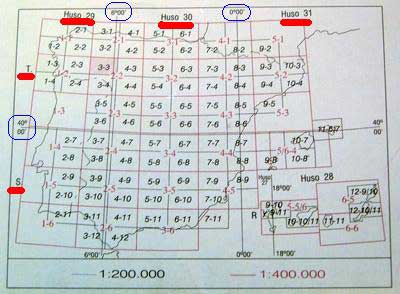 Huso 29 6º00' Huso 30 0º00' Huso 31
2-1 3-1 4-1 5-1 6-1
2-1 3-1 4-1 5-1
1-2 2-2 3-2 4-2 5-2 6-2 7-2 8-2 9-2
T
1-3 2-3 3-3 4-3 5-3 6-3 7-3 8-3 9-3 10-3
2-2 3-2 4-2 5-2
1-4 2-4 3-4 4-4 5-4 6-4 7-4 8-4 9-4 10-4
1-3 3-5 4-5 5-5 6-5 7-5 8-5 9-5
2-3 3-3 4-3 5-3
3-6 4-6 5-6 6-6 7-6 8-6
40º 00' 40º 00'
2-7 3-7 4-7 5-7 6-7 7-7 8-7 10-7
1-4 2-4 3-4 4-4 5/6-4
2-8 3-8 4-8 5-8 6-8 7-8 8-8 9-8 10-8
2-9 3-9 4-9 5-9 6-9 7-9 8-9 Huso 27 18º00' Huso 28
S 1-5 2-5 3-5 4-5
2-10 3-10 4-10 5-10 6-10 7-10 9-10 5-5/6 6-5 12-9/10
2-11 3-11 4-11 5-11 6-11 7-11 R 9-11 10-10/11 11-11 12-10/11
1-6 2-6 3-6 6-6
3-12 4-12
6º00' 0º00' 18º00'
1:200.000 1:400.000